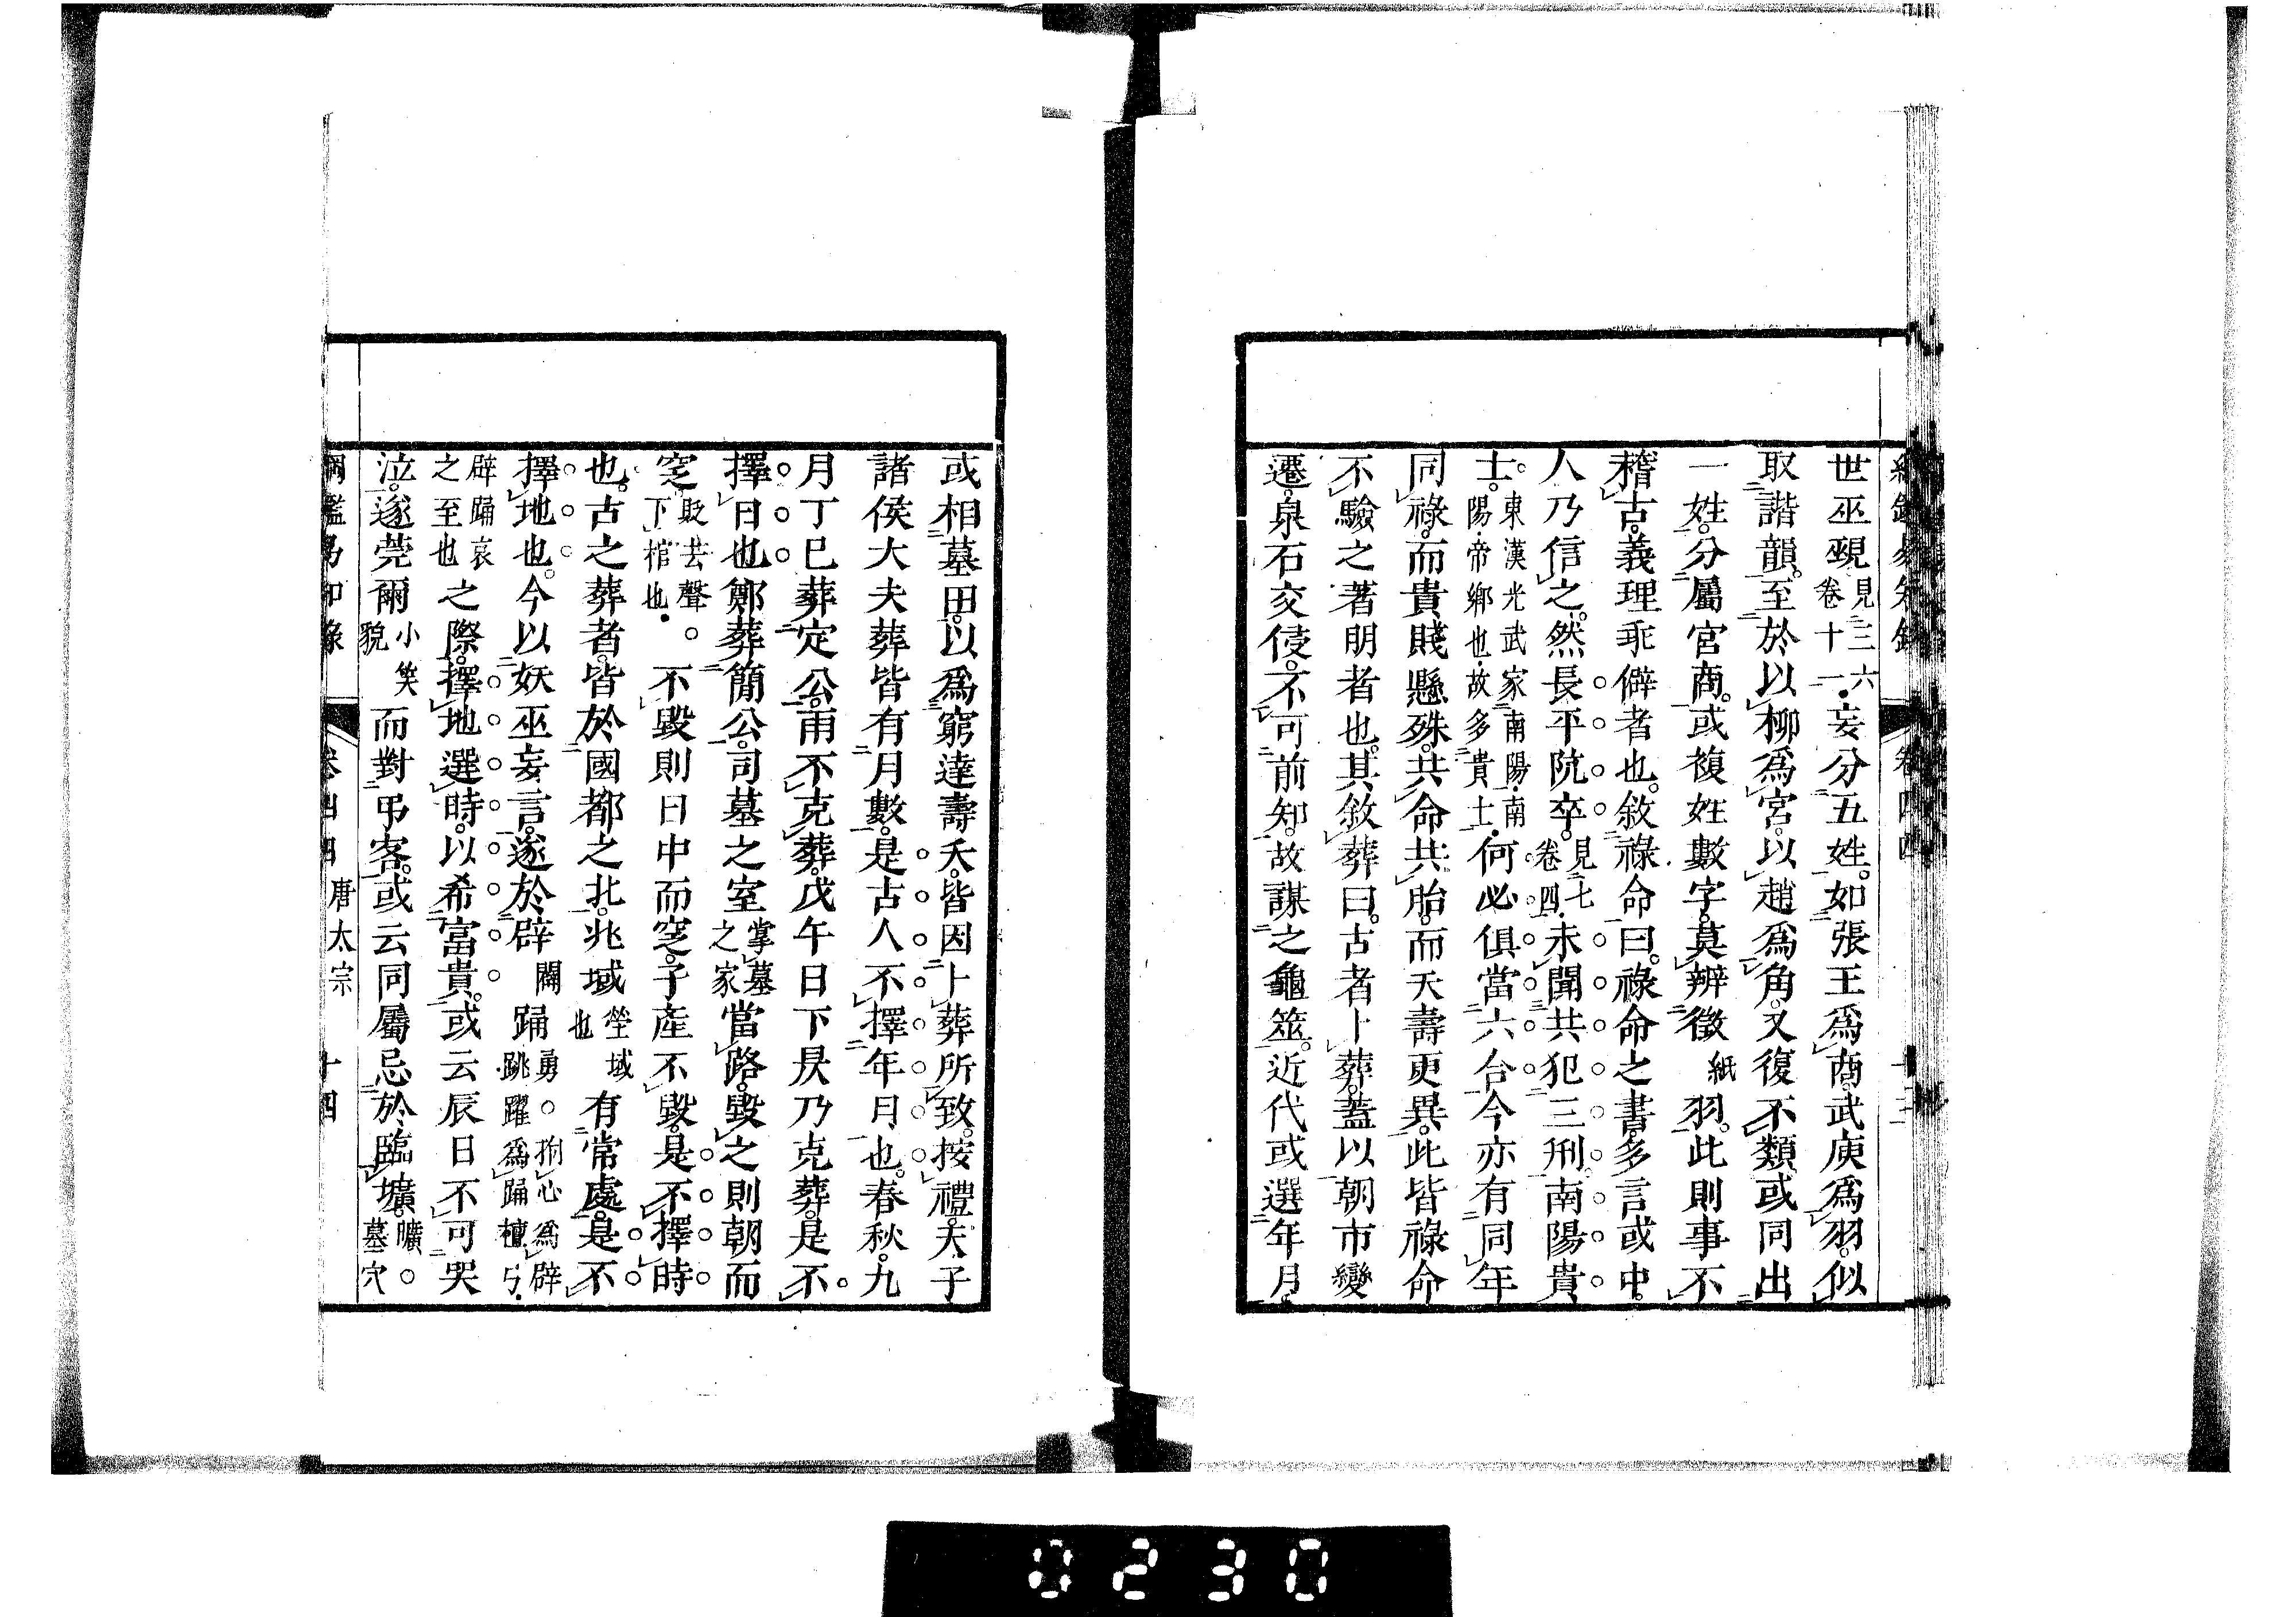 世巫覡見三六卷十一妄分五姓如張王爲商武庚爲羽似
取諧韻至於以柳爲宮以趙爲角又復不類或同出
一姓分屬宮商或複姓數字莫辨徵紙羽此則事不
稽古義理乖僻者也敘祿命曰祿命之書多言或中
人乃信之然長平阬卒見七卷四未聞共犯三刑南陽貴
士東漢光武家南陽南陽帝鄉也故多貴士何必俱當六合今亦有同年
同祿而貴賤懸殊共命共胎而夭壽更異此皆祿命
不驗之著明者也其敘葬曰古者卜葬蓋以朝市變
遷泉石交侵不可前知故謀之龜筮近代或選年月
或相墓田以爲窮達壽夭皆因卜葬所致按禮天子
諸侯大夫葬皆有月數是古人不擇年月也春秋九
月丁巳葬定公雨不克葬戊午日下昃乃克葬是不
擇日也鄭葬簡公司墓之室掌墓之家當路毀之則朝而
窆貶去聲下棺也不毀則日中而窆子產不毀是不擇時
也古之葬者皆於國都之北兆域塋域也有常處是不
擇地也今以妖巫妄言遂於辟闢踊勇拊心爲辟跳躍爲踊檀弓
辟踊哀之至也之際擇地選時以希富貴或云辰日不可哭
泣遂莞爾小笑貌而對弔客或云同屬忌於臨壙曠墓穴
綱鑑易知錄 卷四四 唐太宗 十四
0230